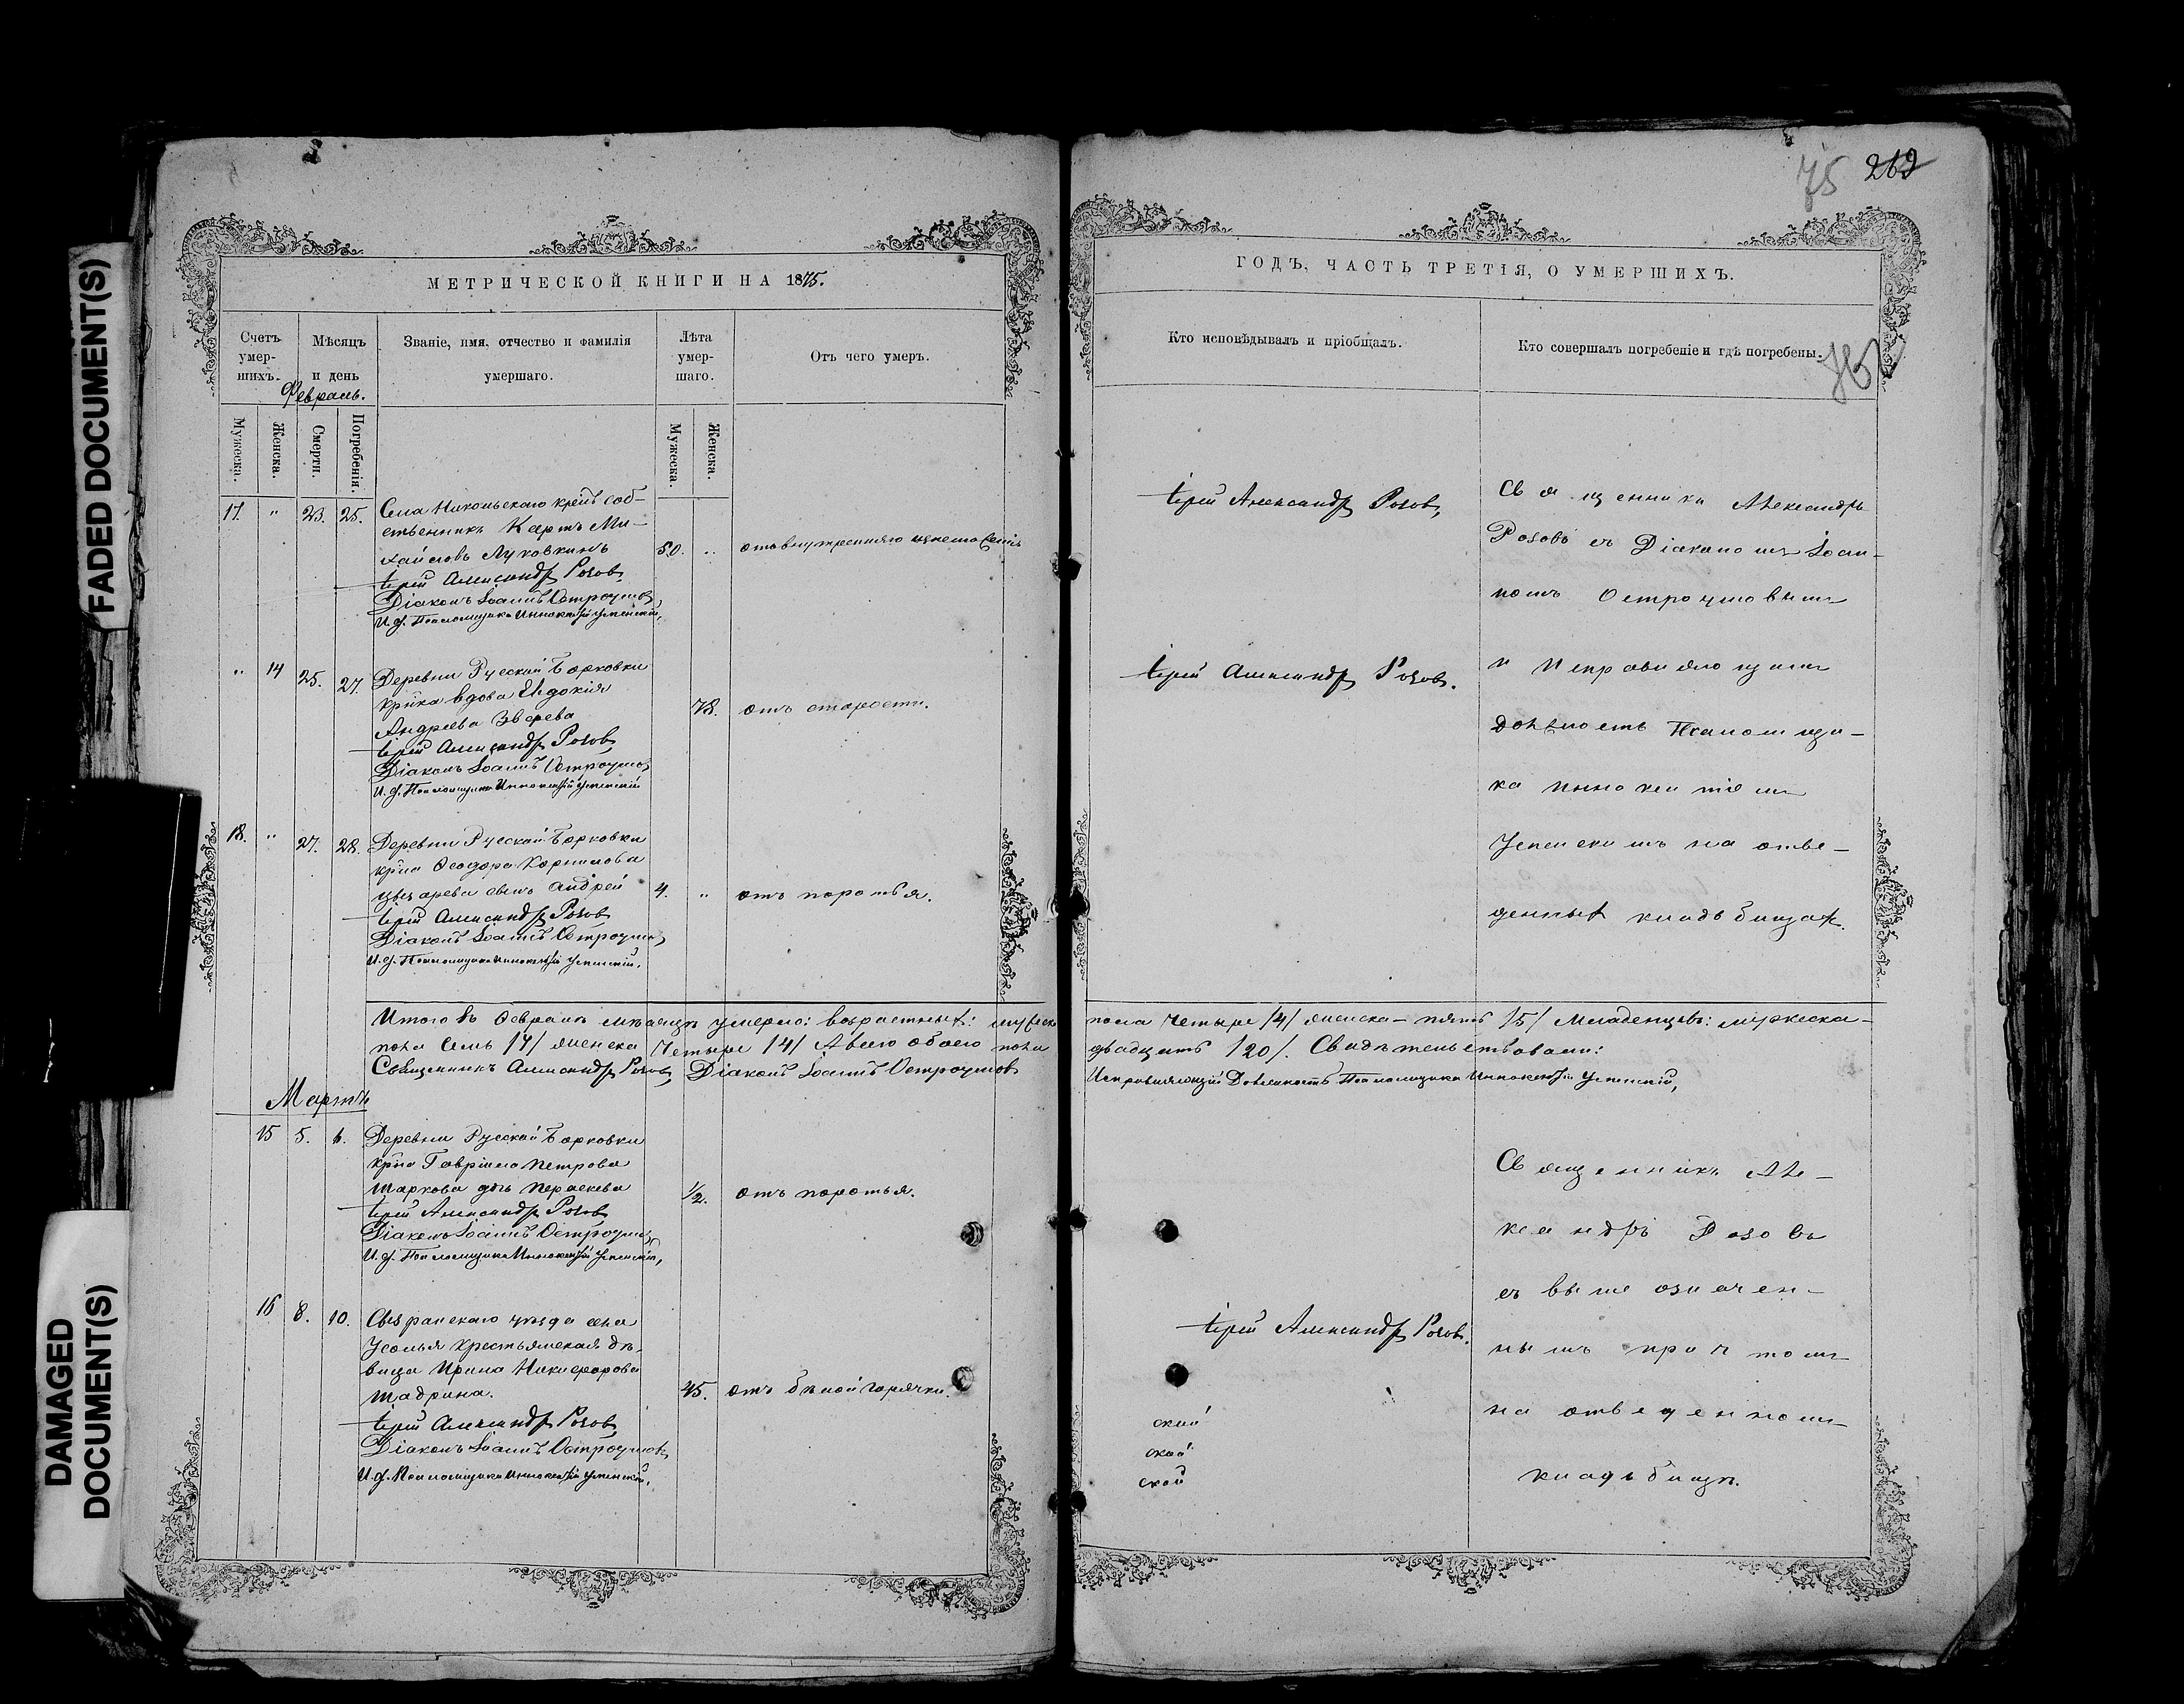 FADED DOCUMENT(S)
DAMAGED
DOCUMENT(S)
МЕТРИЧЕСКОЙ КНИГИ НА 1875.
Счетъ умер-шихъ.
Мѣсяцъ и день
Февраль.
Званіе, имя, отчество и фамилія умершаго.
Лѣта умер-шаго.
Отъ чего умеръ.
Мужеска.
Женска.
Смерти.
Погребенія.
Мужеска.
Женска.
17. " 23. 25. Села Никольскаго крест. соб-
ственникъ Карпъ Ми-
хайловъ Луковкинъ 50. " отъ внутренняго
Іерей Александръ Розовъ,
Діаконъ Іоаннъ Остроумовъ,
И. д. Псаломщика Иннокентій Успенскій,
" 14 25. 27. Деревни Русской Борковки
кр-ка вдова Евдокія
Андреева Зверева 78. отъ старости.
Іерей Александръ Розовъ
Діаконъ Іоаннъ Остроумовъ
И. д. Псаломщика Иннокентій Успенскій
18. " 27. 28. Деревни Русской Борковки
кр-на Ѳеодора Корнилова
сынъ Андрей 4. " отъ поротья.
Іерей Александръ Розовъ
Діаконъ Іоаннъ Остроумовъ
И. д. Псаломщика Иннокентій Успенскій.
Итого въ Февралѣ мѣсяцѣ умерло: возрастныхъ: мужеска
пола Семь /7/ женска Четыре /4/ А всего обоего пола
Священникъ Александръ Розовъ, Діаконъ Іоаннъ Остроумовъ
Мартъ
15 5. 6. Деревни Русской Борковки
кр-на Гавріила Петрова
Маркова дчь Параскева 1/2. отъ поротья.
Іерей Александръ Розовъ
Діаконъ Іоаннъ Остроумовъ
И. д. Псаломщика Иннокентій Успенскій,
16 8. 10. Сызранскаго уѣзда села
Усолья Крестьянская дѣ-
вица Ирина Никифорова
Шадрина. 45. отъ бѣлой горячки.
Іерей Александръ Розовъ
Діаконъ Іоаннъ Остроумовъ
И. д. Псаломщика Иннокентій Успенскій.
75 262
ГОДЪ, ЧАСТЬ ТРЕТІЯ, О УМЕРШИХЪ.
Кто исповѣдывалъ и пріобщалъ.
Кто совершалъ погребеніе и гдѣ погребены.
Іерей Александръ Розовъ,
Іерей Александръ Розовъ.
Священникъ Александръ
Розовъ съ Діакономъ Іоан-
номъ Остроумовымъ
и Исправляющимъ
Должность Псаломщи-
ка Иннокентіемъ
Успенскимъ на отве-
денныхъ кладбищахъ.
пола Четыре /4/ женска – пять /5/ Младенцевъ: мужеска –
двадцать /20/. Свидѣтельствовали:
Исправляющій Должность Псаломщика Иннокентій Успенскій,
Іерей Александръ Розовъ.
Священникъ Але-
ксандръ Розовъ
съ выше означен-
нымъ причтомъ
на отведенномъ
кладбищѣ.
ской
ской
ской